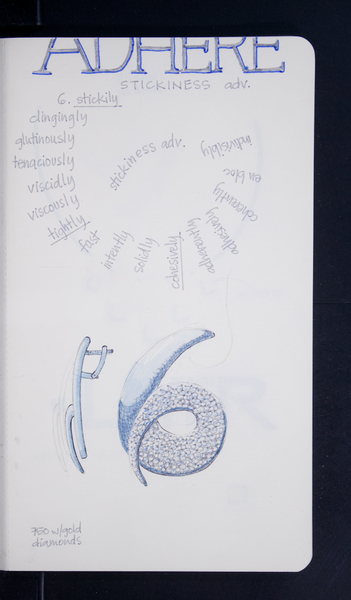 ADHERE
STICKINESS adv.
6. stickily
clingingly
glutinously
tenaciously
viscidly
viscously
tightly
fast
intently
solidly
cohesively
adherently
adhesively
coherently
en bloc
indivisibly
stickiness adv.
750 w/gold
diamonds